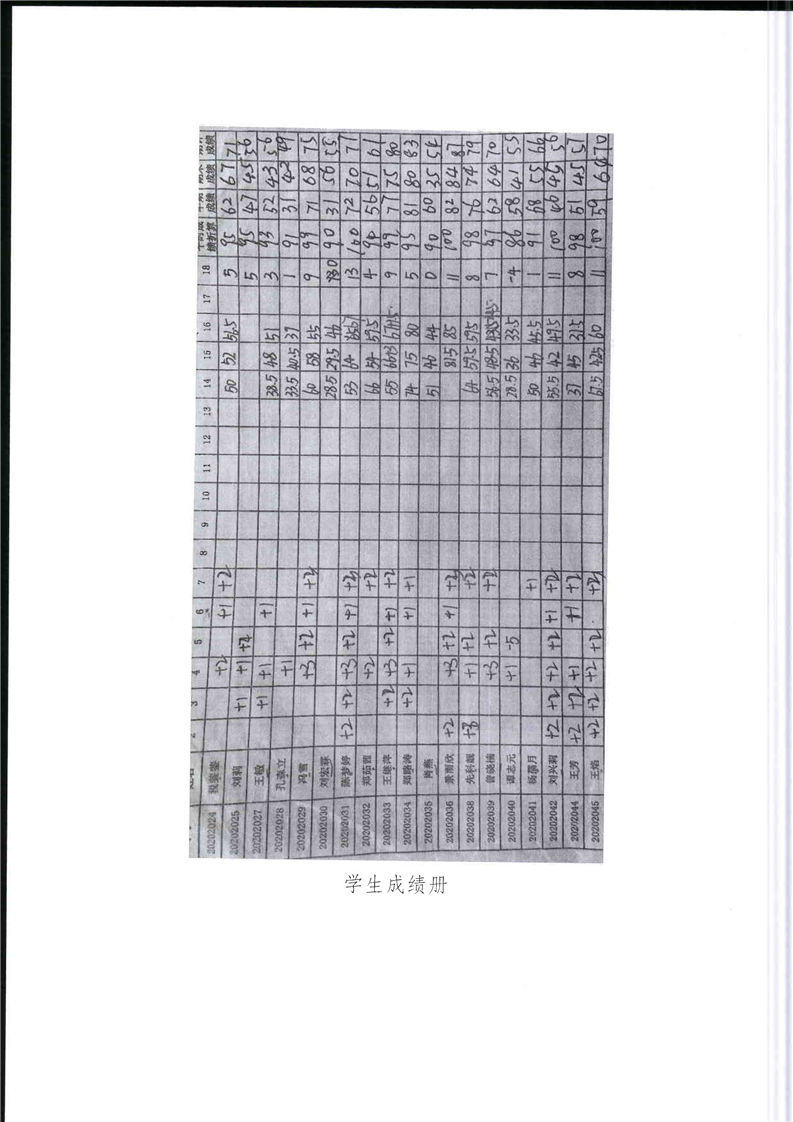 2 3 4 5 6 7 8 9 10 11 12 13 14 15 16 17 18 绩折算 成绩 成绩 成绩
20202024 +2 +1 +2 50 52 56.5 5 95 62 67 71
20202025 刘莉 +1 +1 +2 5 95 47 45 56
20202027 王敏 +1 +1 +1 38.5 48 51 3 93 52 43 56
20202028 孔德立 +1 33.5 40.5 39 1 91 31 42 49
20202029 冯雪 +3 +2 +1 +2 60 58 55 9 99 71 68 75
20202030 刘宏霖 28.5 29.5 46 0 90 31 56 55
20202031 陈梦婷 +2 +2 +3 +2 +1 +2 53 64 13 100 72 70 77
20202032 郑茹茜 +2 +2 66 54 59.5 4 94 56 51 61
20202033 王继萍 +2 +3 +2 +1 +2 55 9 99 77 75 80
20202034 +2 +1 +1 +1 74 75 80 5 95 81 80 83
20202035 肖燕 51 46 44 0 90 60 35 54
20202036 萧雨欣 +2 +3 +2 +1 +2 81.5 85 11 100 82 84 87
20202038 先科靓 +3 +1 +2 +2 64 57.5 59.5 8 98 76 74 79
20202039 曾晓楠 +3 +2 +2 56.5 48.5 7 97 62 64 70
20202040 谭志元 +1 -5 28.5 36 33.5 -4 86 58 41 55
20202041 杨晨月 +1 50 46 45.5 1 91 68 55 66
20202042 刘兴莉 +2 +2 +2 +2 +1 +2 55.5 42 49.5 11 100 46 45 56
20202044 王芳 +2 +2 +1 +1 +2 37 45 31.5 8 98 51 45 51
20202045 王焰 +2 +2 +2 +2 +2 67.5 42.5 60 11 100 59 64 70
学生成绩册